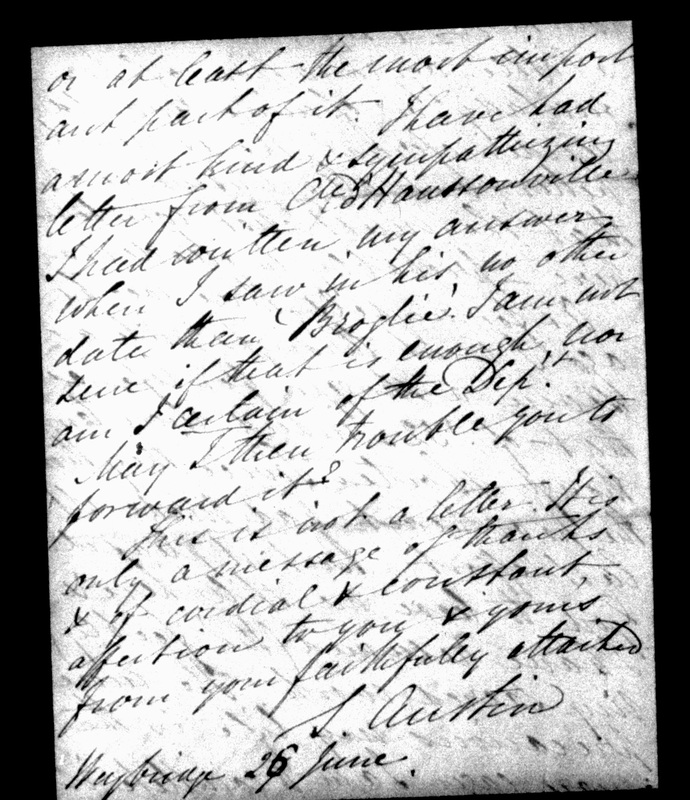 or at least the most import
ant part of it. I have had
a most kind & sympathizing
letter from d'Haussonville
I had written my answer
when I saw in his no other
date than 'Broglie'. I am not
sure if that is enough, nor
am I certain of the Dept.
May I then trouble you to
forward it?
This is not a letter. It is
only a message of thanks
& of cordial & constant
affection to you & yours
from your faithfully attached
S Austin
Weybridge 26 June.